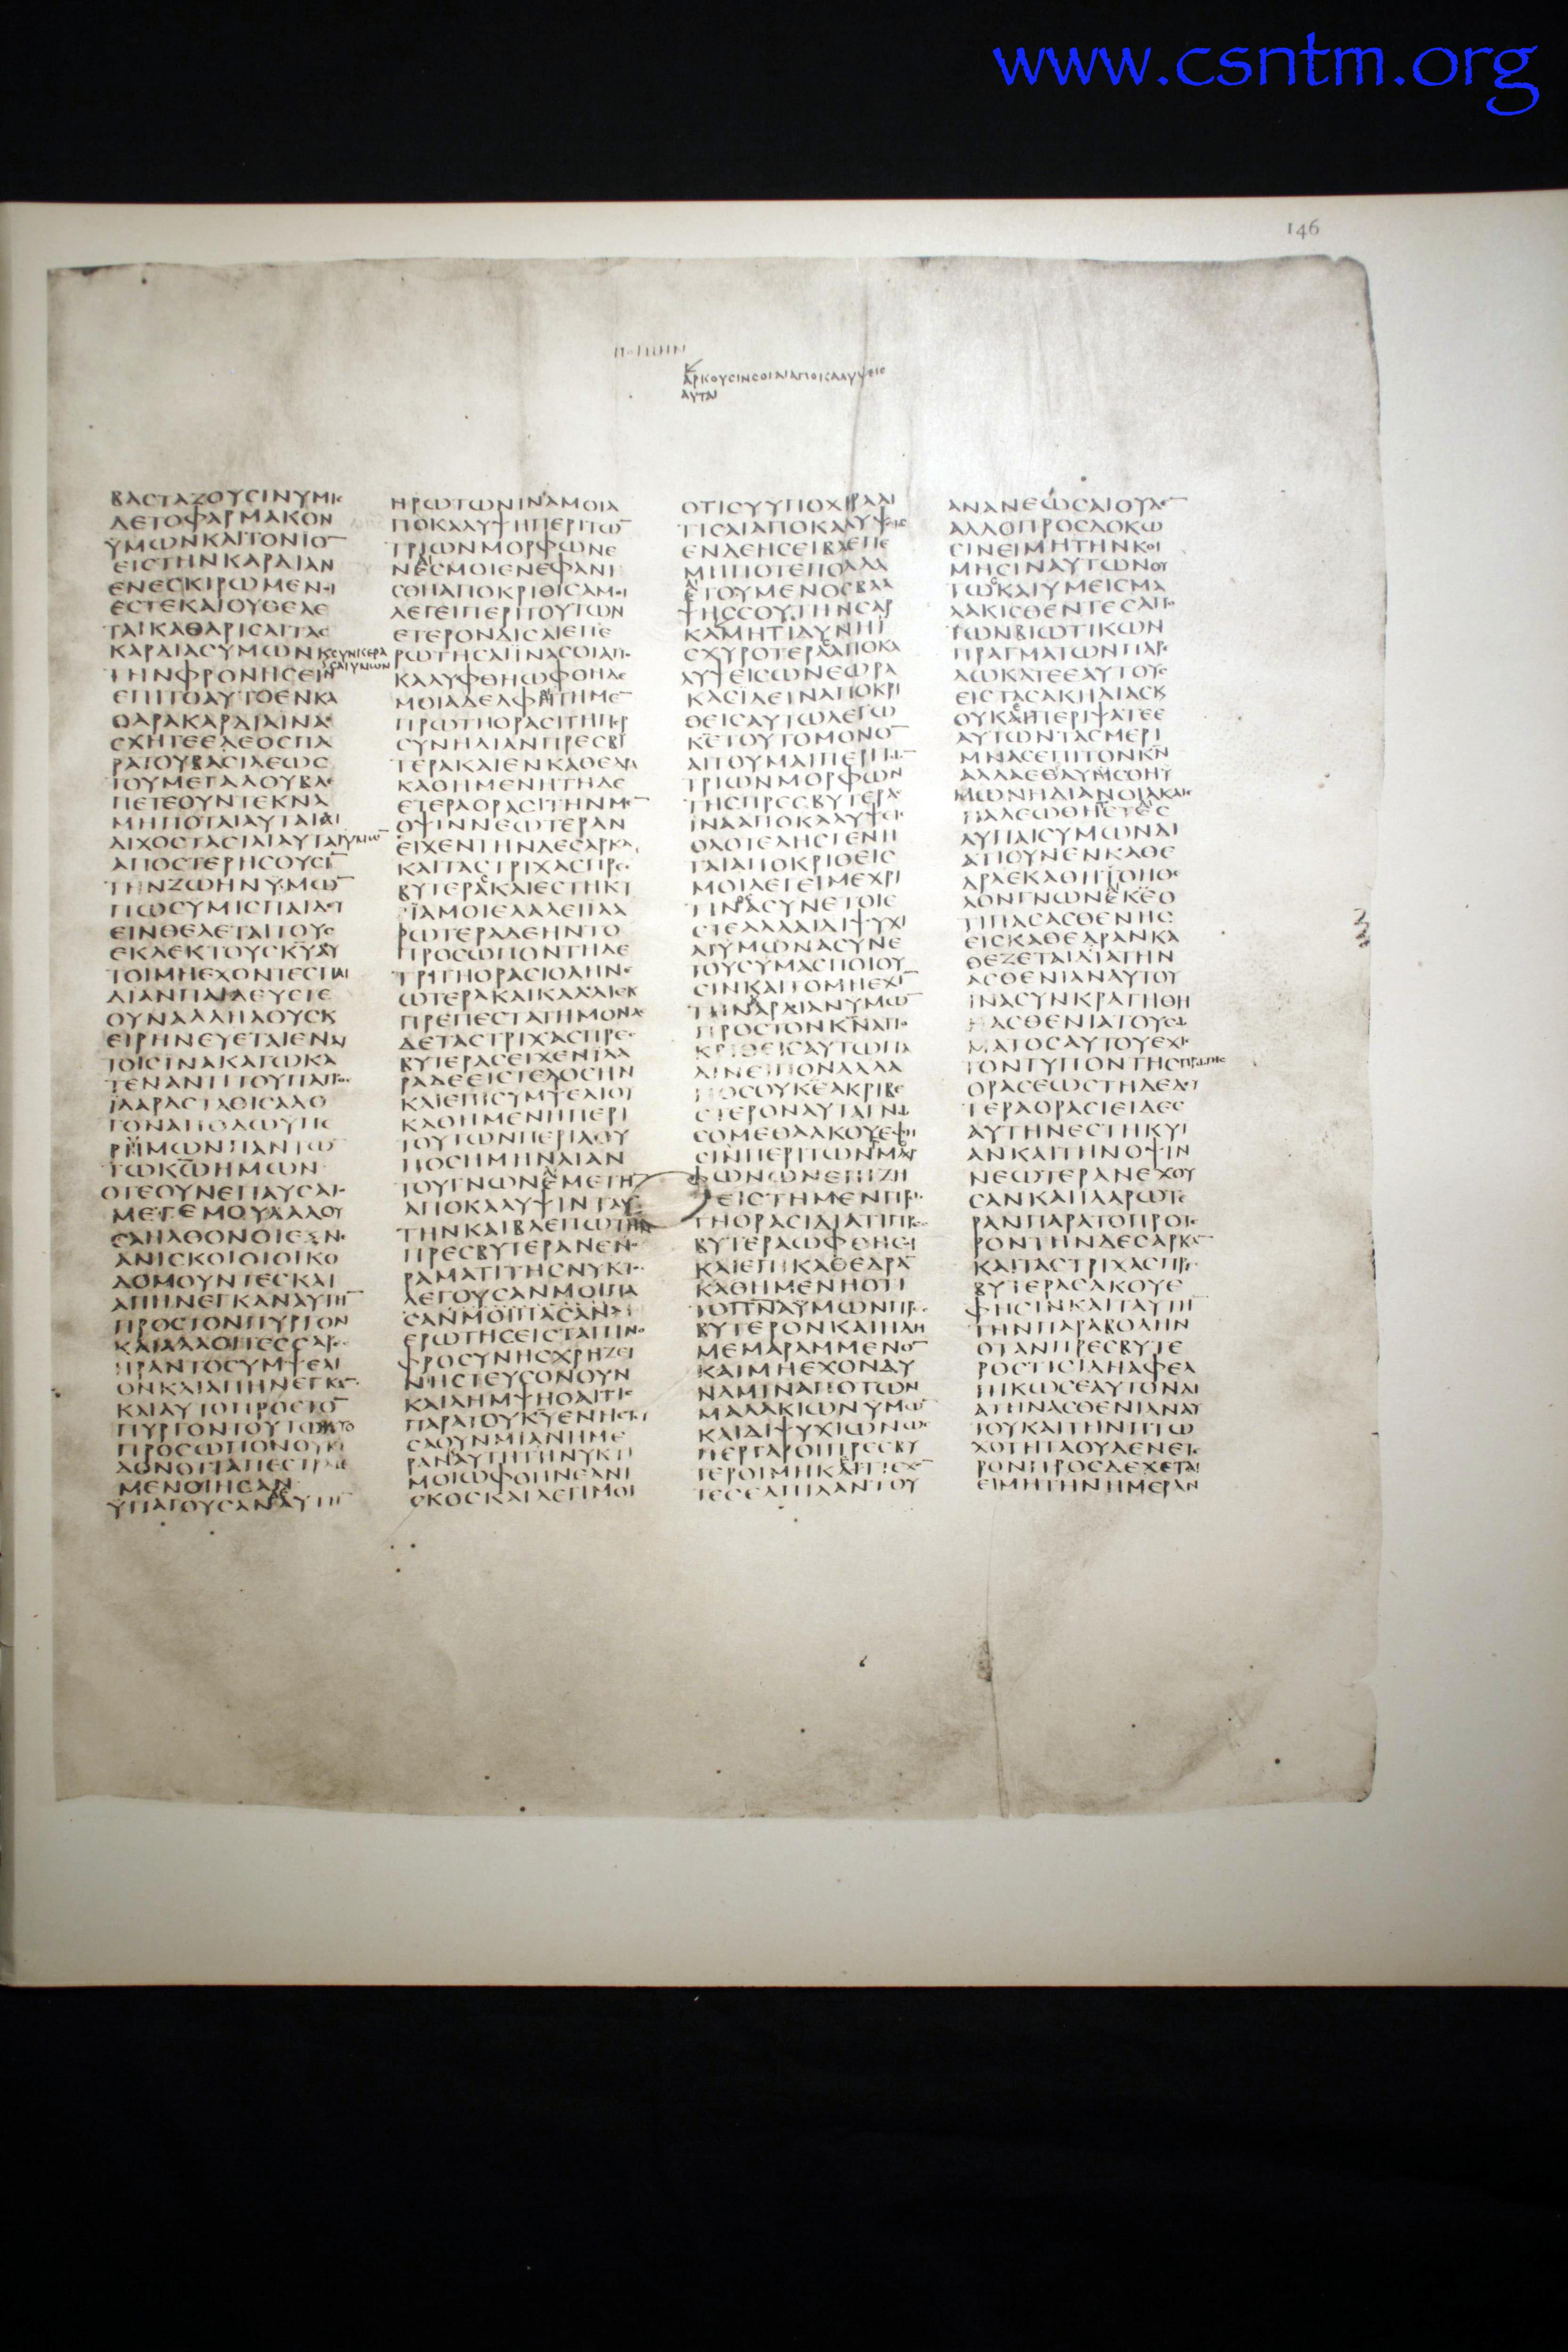 www.csntm.org
146
ΠΟΙΜΗΝ
ΑΡΚΟΥCΙΝCΟΙΑΙΑΠΟΚΑΛΥΨΕΙC
ΑΥΤΑΙ
ΒΑCΤΑΖΟΥCΙΝΥΜΙC
ΔΕΤΟΦΑΡΜΑΚΟΝ
ΥΜΩΝΚΑΙΤΟΝΙΟ̅
ΕΙCΤΗΝΚΑΡΔΙΑΝ
ΕΝΕCΚΙΡΩΜΕΝΟΙ
ΕCΤΕΚΑΙΟΥΘΕΛΕ
ΤΑΙΚΑΘΑΡΙCΑΙΤΑC
ΚΑΡΔΙΑCΥΜΩΝΚ
CΥΝΚΕΡΑ
CΑΙΥΜΩΝ
ΤΗΝΦΡΟΝΗCΕΙΝ
ΕΠΙΤΟΑΥΤΟΕΝΚΑ
ΘΑΡΑΚΑΡΔΙΑΙΝΑ
CΧΗΤΕΕΛΕΟCΠΑ
ΡΑΤΟΥΒΑCΙΛΕΩC
ΤΟΥΜΕΓΑΛΟΥΒΛΕ
ΠΕΤΕΟΥΝΤΕΚΝΑ
ΜΗΠΟΤΑΙΑΥΤΑΙΑΙ
ΔΙΧΟCΤΑCΙΑΙΑΥΤΑΙΥΜΩ̅
ΑΠΟCΤΕΡΗCΟΥCΙ̅
ΤΗΝΖΩΗΝΥΜΩ̅
ΠΩCΥΜΙCΠΑΙΔΕΥ
ΕΙΝΘΕΛΕΤΑΙΤΟΥC
ΕΚΛΕΚΤΟΥCΚΥΑΥ
ΤΟΙΜΗΕΧΟΝΤΕCΠΑΙ
ΔΙΑΝΠΑΙΔΕΥΕΤΕ
ΟΥΝΑΛΛΗΛΟΥCΚ
ΕΙΡΗΝΕΥΕΤΑΙΕΝΑΥ
ΤΟΙCΙΝΑΚΑΓΩΚΑ
ΤΕΝΑΝΤΙΤΟΥΠΑΤΡΟC
ΪΛΑΡΑCΤΑΘΙCΛΟ
ΓΟΝΑΠΟΔΩΥΠΕ
ΡΗΜΩΝΠΑΝΤΩ̅
ΤΩΚΩΗΜΩΝ
ΟΤΕΟΥΝΕΠΑΥCΑΤΟ
ΜΕΤΕΜΟΥΛΑΛΟΥ
CΑΗΛΘΟΝΟΙΕΞΝΕ
ΑΝΙCΚΟΙΟΙΟΙΚΟ
ΔΟΜΟΥΝΤΕCΚΑΙ
ΑΠΗΝΕΓΚΑΝΑΥΤΗ̅
ΠΡΟCΤΟΝΠΥΡΓΟΝ
ΚΑΙΑΛΛΟΙΤΕCCΑΡΕC
ΗΡΑΝΤΟCΥΜΨΕΛΙ
ΟΝΚΑΙΑΠΗΝΕΓΚΑ̅
ΚΑΙΑΥΤΟΠΡΟCΤΟ̅
ΠΥΡΓΟΝΤΟΥΤΩΝΤΟ
ΠΡΟCΩΠΟΝΟΥΚΙ
ΔΟΝΟΤΙΑΠΕCΤΡΑΜ
ΜΕΝΟΙΗCΑΝ
ΫΠΑΓΟΥCΑΝΔΕΑΥΤΗ̅
ΗΡΩΤΩΝΙΝΑΜΟΙΑ
ΠΟΚΑΛΥΨΗΠΕΡΙΤΩ̅
ΤΡΙΩΝΜΟΡΦΩΝΕ
ΝΑΙCΜΟΙΕΝΕΦΑΝΙ
CΘΗΑΠΟΚΡΙΘΙCΑΜΟΙ
ΛΕΓΕΙΠΕΡΙΤΟΥΤΩΝ
ΕΤΕΡΟΝΔΙCΑΙΕΠΕ
ΡΩΤΗCΑΙΪΝΑCΟΙΑΠΟ
ΚΑΛΥΦΘΗΩΦΘΗΔΕ
ΜΟΙΑΔΕΛΦΗΤΗΜΕ̅
ΠΡΩΤΗΟΡΑCΙΤΗΠΕΡ
CΥΝΗΛΙΑΝΠΡΕCΒΥ
ΤΕΡΑΚΑΙΕΝΚΑΘΕΔΡΑ
ΚΑΘΗΜΕΝΗΤΗΔΕ
ΕΤΕΡΑΟΡΑCΙΤΗΝΜΕ̅
ΟΨΙΝΝΕΩΤΕΡΑΝ
ΕΙΧΕΝΤΗΝΔΕCΑΡΚΑ
ΚΑΙΤΑCΤΡΙΧΑCΠΡΕC
ΒΥΤΕΡΑCΚΑΙΕCΤΗΚΥ
ΪΑΜΟΙΕΛΑΛΕΙΪΛΑ
ΡΩΤΕΡΑΔΕΗΝΤΟ
ΠΡΟCΩΠΟΝΤΗΔΕ
ΤΡΙΤΗΟΡΑCΙΟΛΗΝΕ
ΩΤΕΡΑΚΑΙΚΑΛΛΙΕΚ
ΠΡΕΠΕCΤΑΤΗΜΟΝΑC
ΔΕΤΑCΤΡΙΧΑCΠΡΕC
ΒΥΤΕΡΑCΕΙΧΕΝΪΛΑ
ΡΑΔΕΕΙCΤΕΛΟCΗΝ
ΚΑΙΕΠΙCΥΜΨΕΛΙΟΥ
ΚΑΘΗΜΕΝΗΠΕΡΙ
ΤΟΥΤΩΝΠΕΡΙΛΟΥ
ΠΟCΗΜΗΝΛΙΑΝ
ΤΟΥΓΝΩΝΑΙΜΕΤΗ̅
ΑΠΟΚΑΛΥΨΙΝΤΑΥ
ΤΗΝΚΑΙΒΛΕΠΩΤΗΝ
ΠΡΕCΒΥΤΕΡΑΝΕΝΟ
ΡΑΜΑΤΙΤΗCΝΥΚΤΟC
ΛΕΓΟΥCΑΝΜΟΙΠΑ
CΑΝΜΟΙΠΑCΑΝ
ΕΡΩΤΗCΕΙCΤΑΠΙΝΟ
ΦΡΟCΥΝΗCΧΡΗΖΕΙ
ΝΗCΤΕΥCΟΝΟΥΝ
ΚΑΙΛΗΜΨΗΟΑΙΤΙC
ΠΑΡΑΤΟΥΚΥΕΝΗCΤΕΥ
CΑΟΥΝΜΙΑΝΗΜΕ
ΡΑΝΑΥΤΗΤΗΝΥΚΤΙ
ΜΟΙΩΦΘΗΝΕΑΝΙ
CΚΟCΚΑΙΛΕΓΙΜΟΙ
ΟΤΙCΥΥΠΟΧΙΡΑΑΙ
ΤΙCΑΙΑΠΟΚΑΛΥΨΕΙC
ΕΝΔΕΗCΕΙΒΛΕΠΕ
ΜΗΠΟΤΕΠΟΛΛΑ
ΑΙΤΟΥΜΕΝΟCΒΛΑ
ΨΗCCΟΥΤΗΝCΑΡ
ΚΑΜΗΤΙΔΥΝΗΪ
CΧΥΡΟΤΕΡΑCΑΠΟΚΑ
ΛΥΨΕΙCΩΝΕΩΡΑ
ΚΑCΪΔΕΙΝΑΠΟΚΡΙ
ΘΕΙCΑΥΤΩΛΕΓΩ
ΚΕΤΟΥΤΟΜΟΝΟ̅
ΑΙΤΟΥΜΑΙΠΕΡΙΤΩ̅
ΤΡΙΩΝΜΟΡΦΩΝ
ΤΗCΠΡΕCΒΥΤΕΡΑC
ΙΝΑΑΠΟΚΑΛΥΨΕΙ
ΟΛΟΤΕΛΗCΓΕΝΗ
ΤΑΙΑΠΟΚΡΙΘΕΙC
ΜΟΙΛΕΓΕΙΜΕΧΡΙ
ΤΙΝΟCΑCΥΝΕΤΟΙΕ
CΤΕΑΛΛΑΙΔΙΨΥΧΙ
ΑΙΥΜΩΝΑCΥΝΕ
ΤΟΥCΥΜΑCΠΟΙΟΥ
CΙΝΚΑΙΤΟΜΗΕΧΙ̅
ΤΗΝΚΑΡΔΙΑΝΥΜΩ̅
ΠΡΟCΤΟΝΚΝΑΠΟ
ΚΡΙΘΕΙCΑΥΤΩΠΑ
ΛΙΝΕΙΠΟΝΑΛΛΑ
ΠΟCΟΥΚΕΑΚΡΙΒΕ
CΤΕΡΟΝΑΥΤΑΓΝΩ
CΟΜΕΘΑΑΚΟΥΕΦΗ
CΙΝΠΕΡΙΤΩΝΜΟΡ
ΦΩΝΩΝΕΠΙΖΗ
ΤΕΙCΤΗΜΕΝΠΡΩ
ΤΗΟΡΑCΙΔΙΑΤΙΠΡΕC
ΒΥΤΕΡΑΩΦΘΗCΟΙ
ΚΑΙΕΠΙΚΑΘΕΔΡΑ̅
ΚΑΘΗΜΕΝΗΟΤΙ
ΤΟΠΝΑΥΜΩΝΠΡΕC
ΒΥΤΕΡΟΝΚΑΙΗΔΗ
ΜΕΜΑΡΑΜΜΕΝΟ̅
ΚΑΙΜΗΕΧΟΝΔΥ
ΝΑΜΙΝΑΠΟΤΩΝ
ΜΑΛΑΚΙΩΝΥΜΩ̅
ΚΑΙΔΙΨΥΧΙΩΝΩC
ΠΕΡΓΑΡΟΙΠΡΕCΒΥ
ΤΕΡΟΙΜΗΚΕΤΙΕΧΟ̅
ΤΕCΕΛΠΙΔΑΝΤΟΥ
ΑΝΑΝΕΩCΑΙΟΥΔΕ̅
ΑΛΛΟΠΡΟCΔΟΚΩ
CΙΝΕΙΜΗΤΗΝΚΟΙ
ΜΗCΙΝΑΥΤΩΝΟΥ
ΤΩCΚΑΙΥΜΕΙCΜΑ
ΛΑΚΙCΘΕΝΤΕCΑΠΟ
ΤΩΝΒΙΩΤΙΚΩΝ
ΠΡΑΓΜΑΤΩΝΠΑΡΕ
ΔΩΚΑΤΕΕΑΥΤΟΥC
ΕΙCΤΑCΑΚΗΔΙΑCΚ
ΟΥΚΕΠΕΡΙΨΑΤΕΕ
ΑΥΤΩΝΤΑCΜΕΡΙ
ΜΝΑCΕΠΙΤΟΝΚΝ
ΑΛΛΑΕΘΑΥΜCΘΗΥ
ΜΩΝΗΔΙΑΝΟΙΑΚΑΙΕ
ΠΑΛΕΩΘΗCΤΕΤΑΙC
ΛΥΠΑΙCΥΜΩΝΔΙ
ΑΤΙΟΥΝΕΝΚΑΘΕ
ΔΡΑΕΚΑΘΗΤΟΗΘΕ
ΛΟΝΓΝΩΝΑΙΚΕΟ
ΤΙΠΑCΑCΘΕΝΗC
ΕΙCΚΑΘΕΔΡΑΝΚΑ
ΘΕΖΕΤΑΙΔΙΑΤΗΝ
ΑCΘΕΝΙΑΝΑΥΤΟΥ
ΙΝΑCΥΝΚΡΑΤΗΘΗ
ΗΑCΘΕΝΙΑΤΟΥCΩ
ΜΑΤΟCΑΥΤΟΥΕΧΙC
ΤΟΝΤΥΠΟΝΤΗCΠΡΩΤΗC
ΟΡΑCΕΩCΤΗΔΕΔΕΥ
ΤΕΡΑΟΡΑCΙΕΙΔΕC
ΑΥΤΗΝΕCΤΗΚΥΙ
ΑΝΚΑΙΤΗΝΟΨΙΝ
ΝΕΩΤΕΡΑΝΕΧΟΥ
CΑΝΚΑΙΙΛΑΡΩΤΕ
ΡΑΝΠΑΡΑΤΟΠΡΟΤΕ
ΡΟΝΤΗΝΔΕCΑΡΚΑ̅
ΚΑΙΤΑCΤΡΙΧΑCΠΡΕC
ΒΥΤΕΡΑCΑΚΟΥΕ
ΦΗCΙΝΚΑΙΤΑΥΤΗ̅
ΤΗΝΠΑΡΑΒΟΛΗΝ
ΟΤΑΝΠΡΕCΒΥΤΕ
ΡΟCΤΙCΙΔΗΑΦΕΛ
ΠΙΚΩCΕΑΥΤΟΝΔΙ
ΑΤΗΝΑCΘΕΝΙΑΝΑΥ
ΤΟΥΚΑΙΤΗΝΠΤΩ
ΧΟΤΗΤΑΟΥΔΕΝΕΤΕ
ΡΟΝΠΡΟCΔΕΧΕΤΑΙ
ΕΙΜΗΤΗΝΗΜΕΡΑΝ